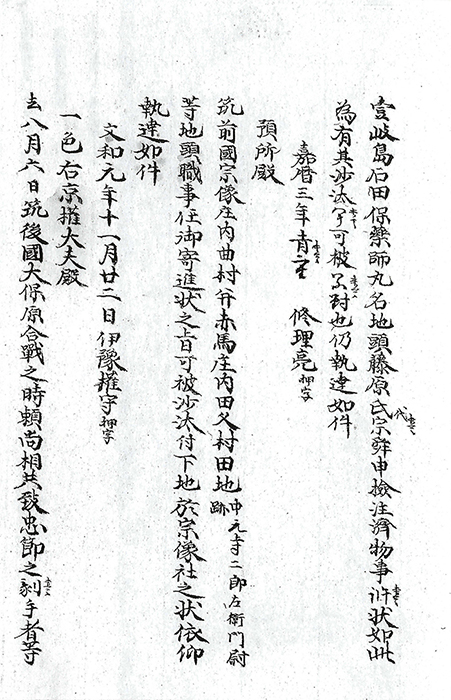 壹岐島石田保藥師丸名地頭藤原氏代宗舜申檢注濟物事訴状如此
為有其沙汰可被對也仍執達如件
嘉暦三年 修理亮押字
預所殿
筑前國宗像庄内曲村并赤馬庄内田久村田地中元寺二郎左衛門尉跡
等地頭職事任御寄進状之旨可被沙汰付下地於宗像社之状依仰
執達如件
文和元年十一月廿二日伊豫權守押字
一色右京權大夫殿
去八月六日筑後國大保原合戰之時頼尚相共致忠節之刻手者等